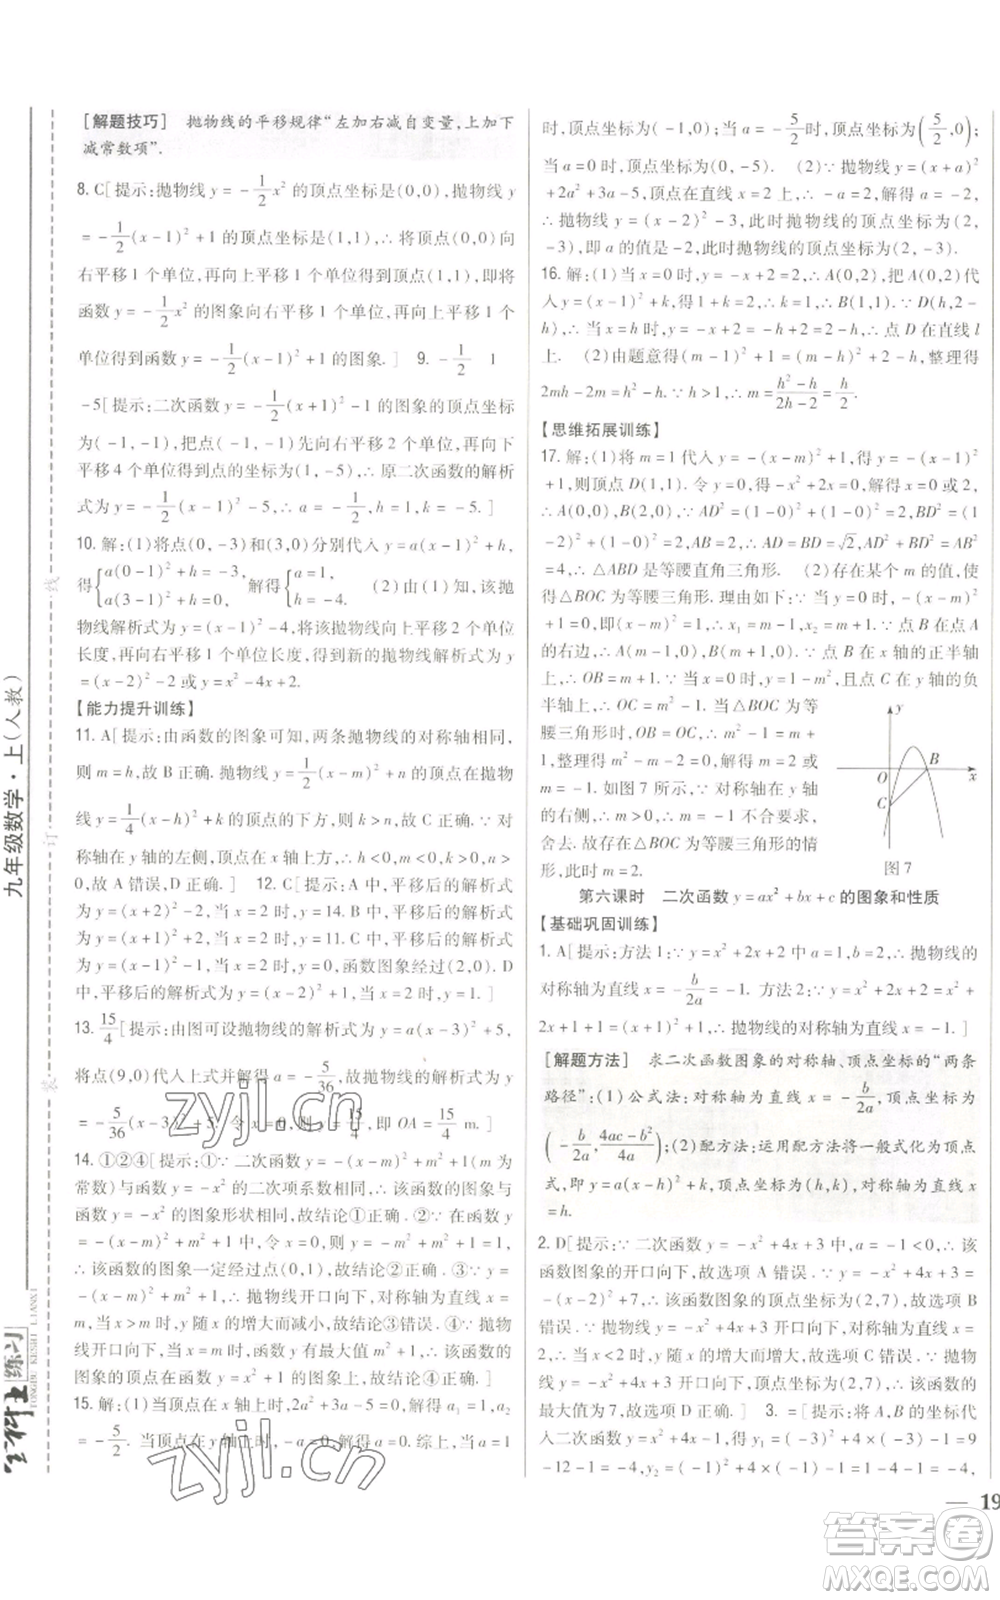 [解题技巧] 抛物线的平移规律“左加右减自变量,上加下
减常数项”.
8. C[提示:抛物线 y=-1/2x²的顶点坐标是(0,0),抛物线 y
=-1/2(x-1)²+1的顶点坐标是(1,1),∴将顶点(0,0)向
右平移1个单位,再向上平移1个单位得到顶点(1,1),即将
函数 y=-1/2x²的图象向右平移1个单位,再向上平移1个
单位得到函数 y=-1/2(x-1)²+1的图象.] 9. -1/2 1
-5[提示:二次函数 y=-1/2(x+1)²-1的图象的顶点坐标
为(-1,-1),把点(-1,-1)先向右平移2个单位,再向下
平移4个单位得到点的坐标为(1,-5),∴原二次函数的解析
式为 y=-1/2(x-1)²-5,∴a=-1/2,h=1,k=-5.]
10. 解:(1)将点(0,-3)和(3,0)分别代入 y=a(x-1)²+k,
得{a(0-1)²+k=-3, a(3-1)²+k=0, 解得{a=1, k=-4. (2)由(1)可知,该抛
物线解析式为 y=(x-1)²-4,将该抛物线向上平移2个单
位长度,再向右平移1个单位长度,得到新的抛物线解析式为
y=(x-2)²-2.
【能力提升训练】
11. A[提示:由函数的图象可知,两条抛物线的对称轴相同,
则 m=h,故 B 正确.抛物线 y=1/4(x-m)²+n 的顶点在抛物
线 y=1/4(x-h)²+k 的顶点的下方,则 k>n,故 C 正确.∵对
称轴在 y 轴的左侧,顶点在第三象限,∴m=h<0,n<0,k<
0.故 A 错误,D 正确.] 12. C[提示:A 中,平移后的解析式
为 y=(x+2)²-2,当 x=2时,y=14.B 中,平移后的解析式
为 y=(x-1)²-1,当 x=2时,y=0,函数图象经过(2,0).D
中,平移后的解析式为 y=(x-2)²-1,当 x=2时,y=-1.]
13. 15/4[提示:由图可设抛物线的解析式为 y=a(x-3)²+5,
将点(9,0)代人上式并解得 a=-5/36,故抛物线的解析式为 y
=-5/36(x-3)²+5,当 x=0时,y=15/4,即 OA=15/4 m.]
14. ①②④[提示:①∵二次函数 y=-(x-m)²+m²+1(m为
常数)与函数 y=-x²的二次项系数相同,∴该函数的图象与
函数 y=-x²的图象形状相同,故结论①正确.②∵在函数 y
=-(x-m)²+m²+1中,令 x=0,则 y=-m²+m²+1=1,∴
该函数的图象一定经过点(0,1),故结论②正确.③∵y=
-(x-m)²+m²+1,∴抛物线开口向下,对称轴为直线 x=
m,当 x>m时,y 随 x 的增大而减小,故结论③错误.④∵抛物
线开口向下,当 x=m时,函数 y 有最大值 m²+1,∴该函数的
图象的顶点在函数 y=x²+1的图象上,故结论④正确.]
15. 解:(1)当顶点在 x 轴上时,2a²+3a-5a=0,解得 a₁=0,a₂
=-5/2.当顶点在 y 轴上时,-a=0,解得 a=0.综上,当 a=1
时,顶点坐标为(-1,0);当 a=-5/2时,顶点坐标为(5/2,0);
当 a=0时,顶点坐标为(0,-5). (2)∵抛物线 y=(x+a)²+
2a²+3a-5的顶点在直线 x=2上,∴-a=2,解得 a=-2,
∴抛物线 y=(x-2)²-3,此时抛物线的顶点坐标为(2,
-3),即 a 的值是-2,此时抛物线的顶点坐标为(2,-3).
16. 解:(1)当 x=0时,y=-x+2=2,∴A(0,2),把 A(0,2)代
人 y=(x-1)²+k,得1+k=2,∴k=1,∴B(1,1).∵D(h,2-
h),∴当 x=h时,y=-x+2=-h+2=2-h,∴点 D 在直线 l
上. (2)由题意得(m-1)²+1=(m-h)²+2-h,整理得
2mh-2m=h²-h.∵h>1,∴m=h²-h/2h-2=h/2.
【思维拓展训练】
17. 解:(1)将 m=1代人 y=-(x-m)²+1,得 y=-(x-1)²+
1,则顶点 D(1,1).令 y=0,得0=-x²+2x,x₁=0,x₂=2,
∴A(0,0),B(2,0).∵AD²=(1-0)²+(1-0)²=2,BD²=(1
-2)²+(1-0)²=2,AB=2,∴AD=BD=√2,AD²+BD²=
AB²,∴△ABD是等腰直角三角形. (2)存在某个 m 的值,使
得△BOC为等腰三角形.理由如下:当△BOC为等腰三角形时,
令 y=0,得-(x-m)²+1=0,∴x₁=m-1,x₂=m+1.∵点 B 在点 A
的右边,∴OB=m+1.∵点 B 在 x 轴的正半轴上,点 C 在 y 轴的负
半轴上,∴OC=m²-1.当△BOC为等
腰三角形时,OB=OC,即 m²-1=m+1,
∴m=2或 m=-1.∵对称轴在 y 轴
的右侧,∴m>0,∴m=-1不合要求,
舍去.故存在△BOC为等腰三角形的情
形,此时 m=2.
y
O
B
x
C
图7
第六课时 二次函数 y=ax²+bx+c 的图象和性质
【基础巩固训练】
1. A[提示:方法1:∵y=x²+2x+2中,a=1,b=2,∴抛物线的
对称轴为直线 x=-b/2a=-1. 方法2:∵y=x²+2x+2=x²+
2x+1+1=(x+1)²+1,∴抛物线的对称轴为直线 x=-1.]
[解题方法] 求二次函数图象的对称轴、顶点坐标的“两条
路径”:(1)公式法:对称轴为直线 x=-b/2a,顶点坐标为
(-b/2a,4ac-b²/4a);(2)配方法:运用配方法将一般式化为顶点
式,即 y=a(x-h)²+k,顶点坐标为(h,k),对称轴为直线 x
=h.
2. D[提示:∵二次函数 y=-x²+4x+3中,a=-1<0,∴该
函数图象的开口向下,故选项 A 错误.∵y=-x²+4x+3=
-(x-2)²+7,∴该函数图象的顶点坐标为(2,7),故选项 C
错误.∵该函数图象的开口向下,对称轴为直线 x=2,∴当 x<
0时,y 随 x 的增大而增大,故选项 B 错误.
大值7,故选项 D 正确.] 3. =[提示:将 A,B 的坐标代
人二次函数 y=x²+4x-1,得 y₁=(-3)²+4×(-3)-1=9
-12-1=-4,y₂=(-1)²+4×(-1)-1=1-4-1=-4,
— 19
九年级数学·上(人教)
装 订 线
全科王 同步课时练习
TONGBU KESHI LIANXI
zyjl.cn
zyjl.cn
答案圈
MXQE.COM